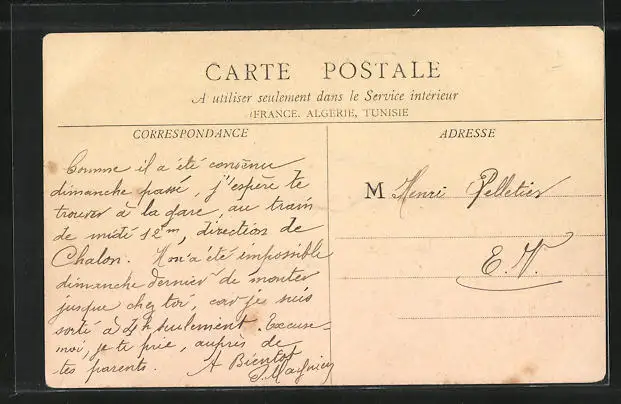 CARTE POSTALE
A utiliser seulement dans le Service intérieur
(FRANCE. ALGERIE, TUNISIE
CORRESPONDANCE
Comme il a été convenu
dimanche passé, j'espère te
trouver à la gare, au train
de midi 12m, direction de
Chalon. Il m'a été impossible
dimanche dernier de monter
jusque chez toi, car je suis
sorti à 4h seulement. Excuse-
moi, je te prie, auprès de
tes parents. A Bientot
ADRESSE
M Henri Pelletier
E. V.